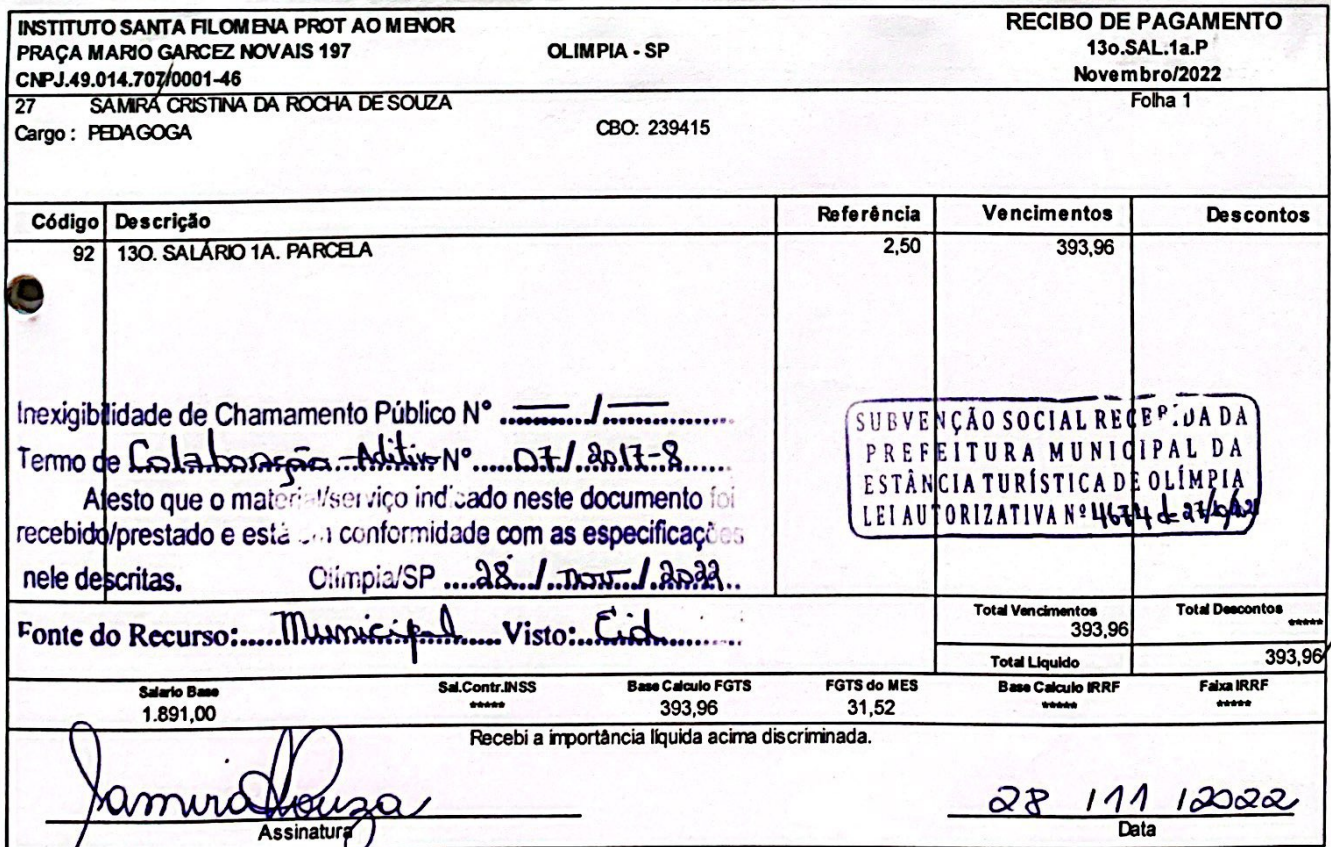 INSTITUTO SANTA FILOMENA PROT AO MENOR
PRAÇA MARIO GARCEZ NOVAIS 197 OLIMPIA - SP
CNPJ.49.014.707/0001-46
RECIBO DE PAGAMENTO
13o.SAL.1a.P
Novembro/2022
27 SAMIRA CRISTINA DA ROCHA DE SOUZA
Folha 1
Cargo : PEDAGOGA CBO: 239415
Código Descrição Referência Vencimentos Descontos
92 13O. SALÁRIO 1A. PARCELA 2,50 393,96
Inexigibilidade de Chamamento Público Nº ...../.....
Termo de Colaboração-Aditivo Nº.....07/2017-8......
Atesto que o material/serviço indicado neste documento foi
recebido/prestado e está em conformidade com as especificações
nele descritas. Olímpia/SP ....28../..nov../.2022..
SUBVENÇÃO SOCIAL RECEBIDA DA
PREFEITURA MUNICIPAL DA
ESTÂNCIA TURÍSTICA DE OLÍMPIA
LEI AUTORIZATIVA Nº 4674 de
Fonte do Recurso:.....Municipal.....Visto:..Cid.........
Total Vencimentos Total Descontos
393,96 *****
Total Liquido 393,96
Salario Base Sal.Contr.INSS Base Calculo FGTS FGTS do MES Base Calculo IRRF Faixa IRRF
1.891,00 ***** 393,96 31,52 ***** *****
Recebi a importância líquida acima discriminada.
Samira Souza 28 / 11 / 2022
Assinatura Data